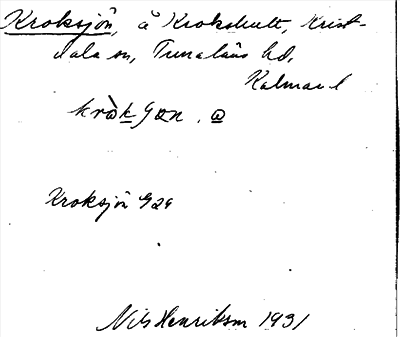 Kroksjön, å Krokshult, Krist-
dala sn, Tunaläns hd,
Kalmar l
Kroksjön
Nils Henrikson 1931